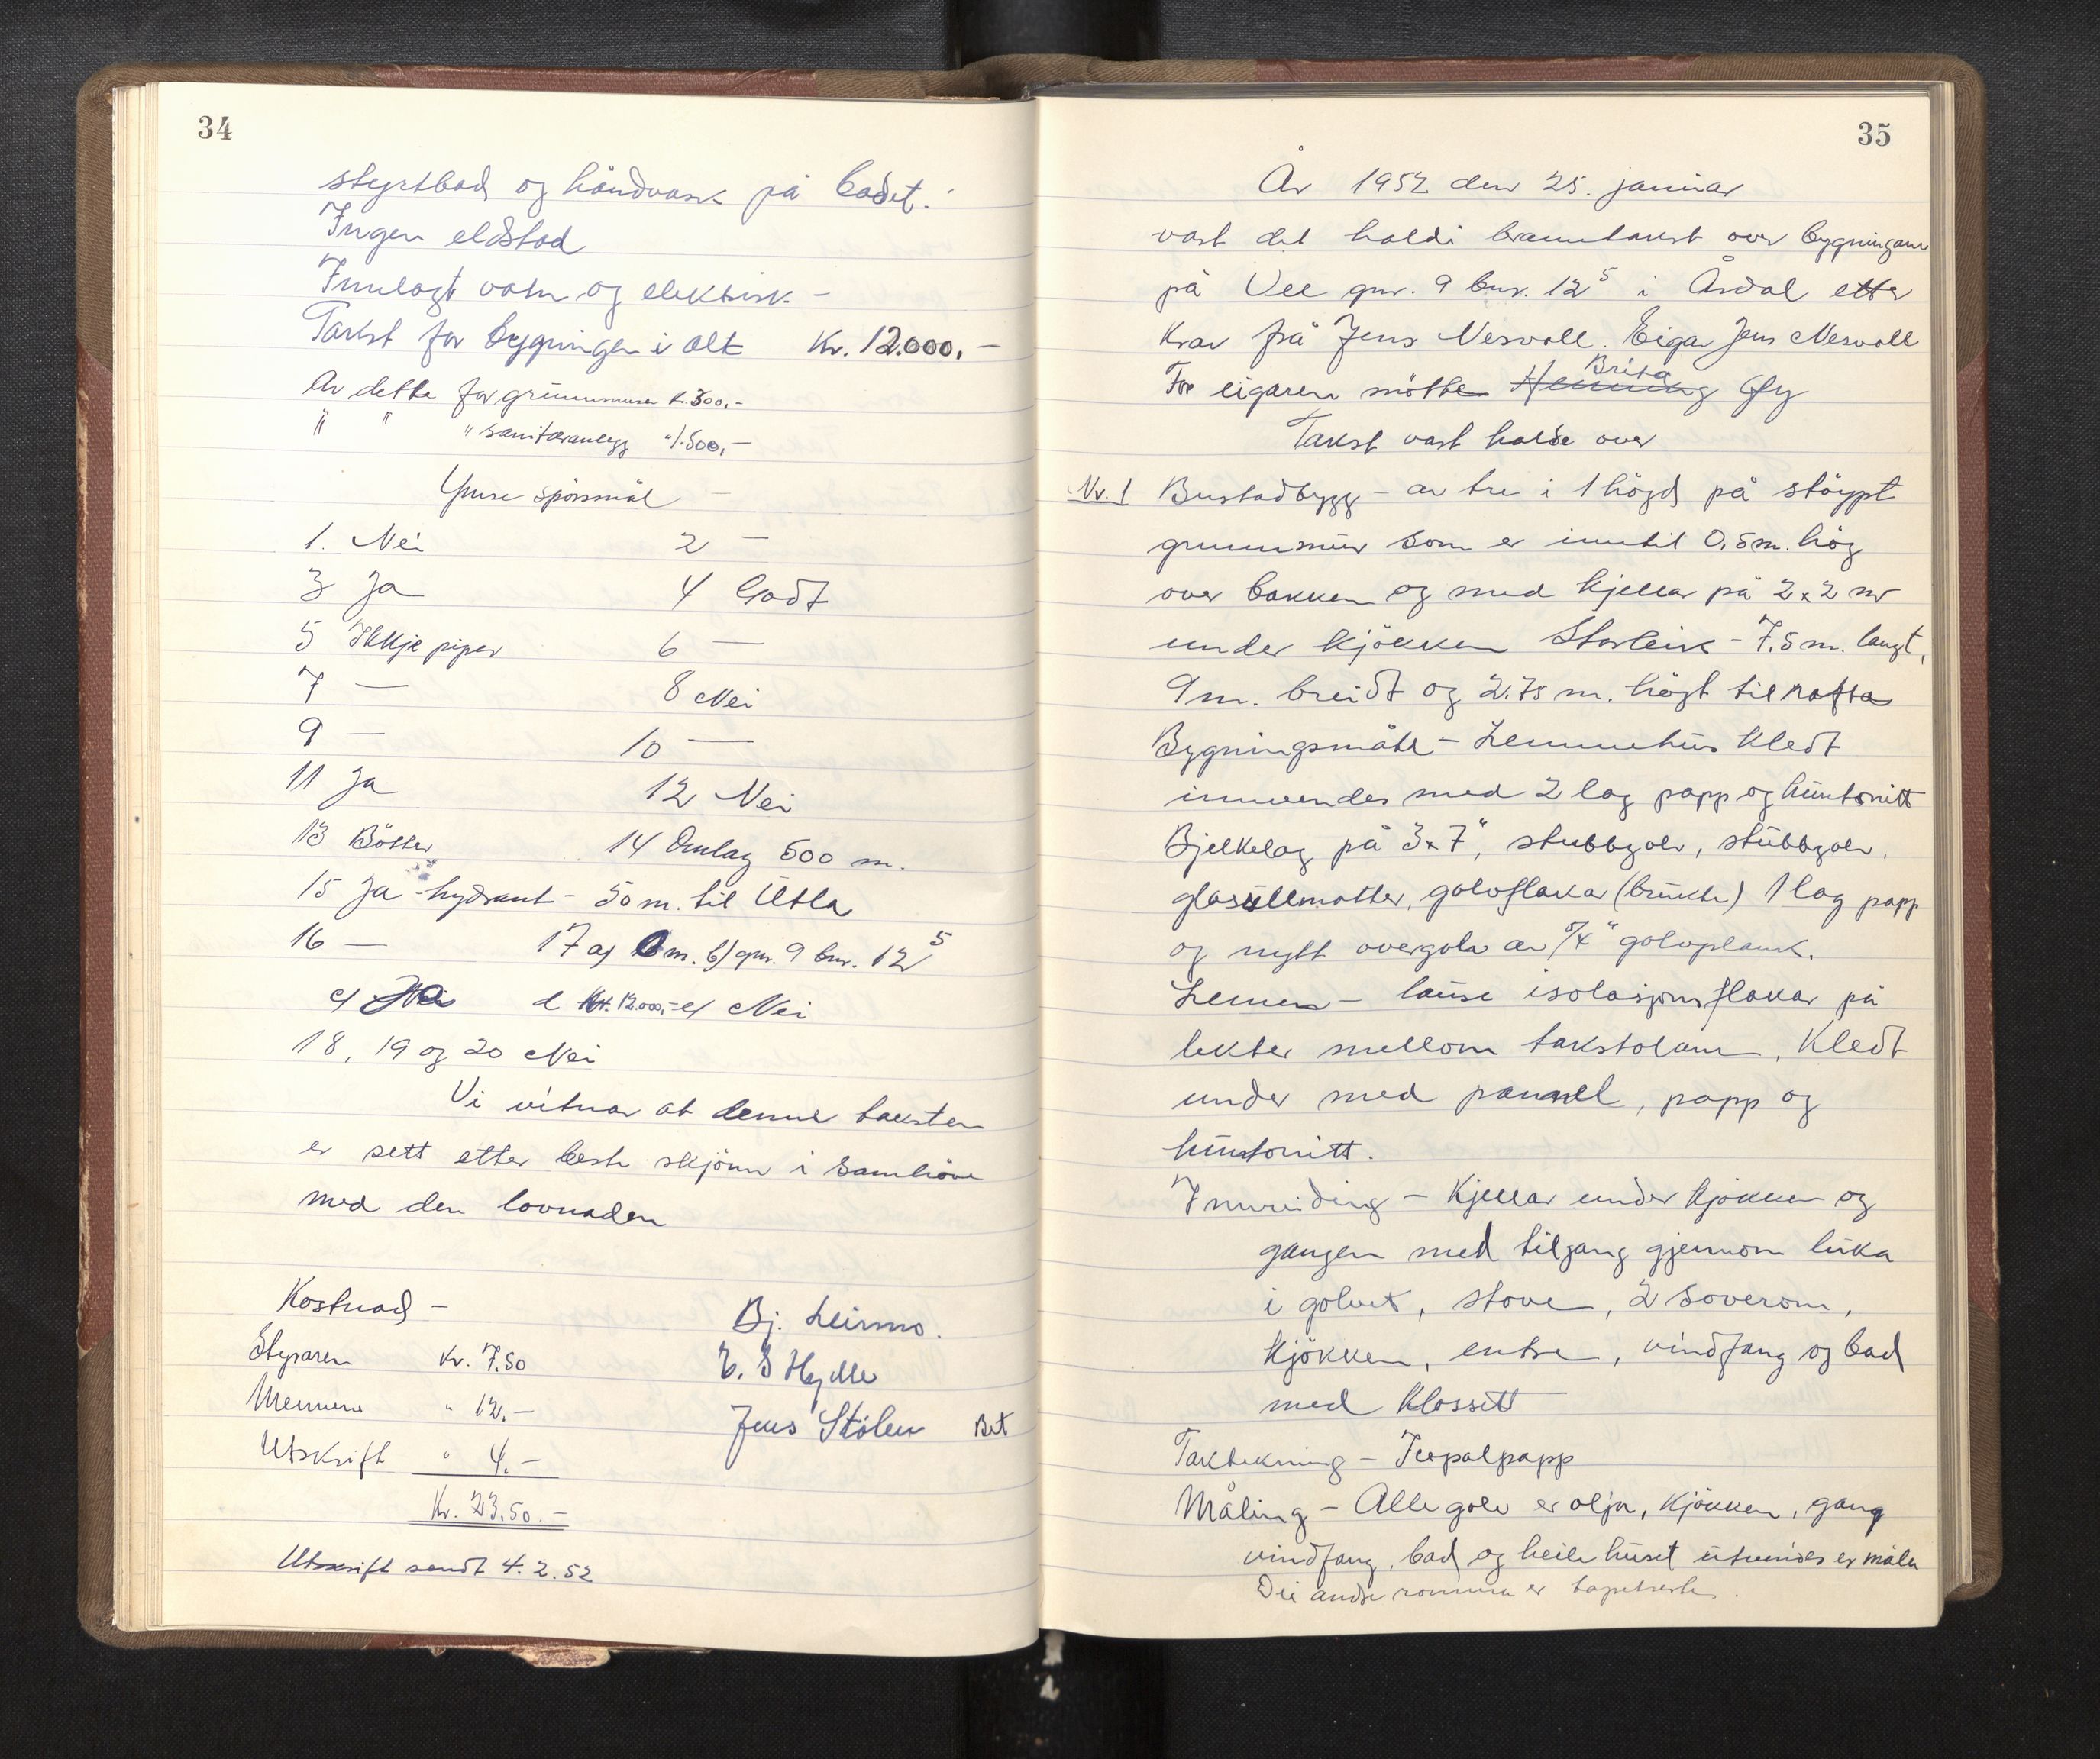 34
styrtbad og håndvask på badet.
Ingen eldstad
Innlagt vatn og elektrisk. -
Takst for bygningen i alt Kr. 12.000,-
Av dette for grunnmuren k. 300,-
" " " sanitæranlegg " 1.500,-
Ymse spörsmål
1. Nei 2 —
3 Ja 4 Godt
5 Ikkje piper 6 —
7 — 8 Nei
9 — 10 —
11 Ja 12 Nei
13 Bötter 14 Omlag 500 m.
15 Ja - hydrant - 50 m. til Utla
16 — 17 a) 0 m. b) gnr. 9 bnr. 12⁵
c) Ja d Kr. 12.000,- e) Nei
18, 19 og 20 Nei
Vi vitnar at denne taksten
er sett etter beste skjönn i samhöve
med den lovnaden
Kostnad -
Styraren Kr. 7.50
Mennene " 12.-
Utskrift " 4.-
Kr. 23.50.-
Bj. Leirmo.
E. S Hylle
Jens Stölen Bet
Utskrift sendt 4.2.52
35
År 1952 den 25. januar
vart det haldi branntakst over bygningane
på Vee gnr. 9 bnr. 12⁵ i Årdal etter
krav frå Jens Nesvoll. Eigar Jens Nesvoll
For eigaren mötte Henning Brita Øy
Takst vart halde over
Nr. 1 Bustadbygg - av tre i 1 högd på stöypt
grunnmur som er inntil 0,5 m. hög
over bakken og med kjellar på 2 x 2 m
under kjökken Storleik - 7.5 m. langt,
9 m. breidt og 2.75 m. högt til rafta
Bygningsmåte - Lemmehus kledt
innvendes med 2 lag papp og huntonitt
Bjelkelag på 3x7", stubbgolv, stubbgolv,
glasullmatter, golvflakar (brukte) 1 lag papp
og nytt overgolv av 5/4" golvplank.
Lemen - lause isolasjonsflakar på
lekter mellom takstolane, kledt
under med pannel, papp og
huntonitt.
Innreiding - Kjellar under kjökken og
gangen med tilgang gjennom luka
i golvet, stove, 2 soverom,
kjökken, entre, vindfang og bad
med klossett
Taktekning - Icopalpapp
Måling - Alle golv er olja, kjökken, gang
vindfang, bad og heile huset utvendes er måla
Dei andre romma er tapetserte.